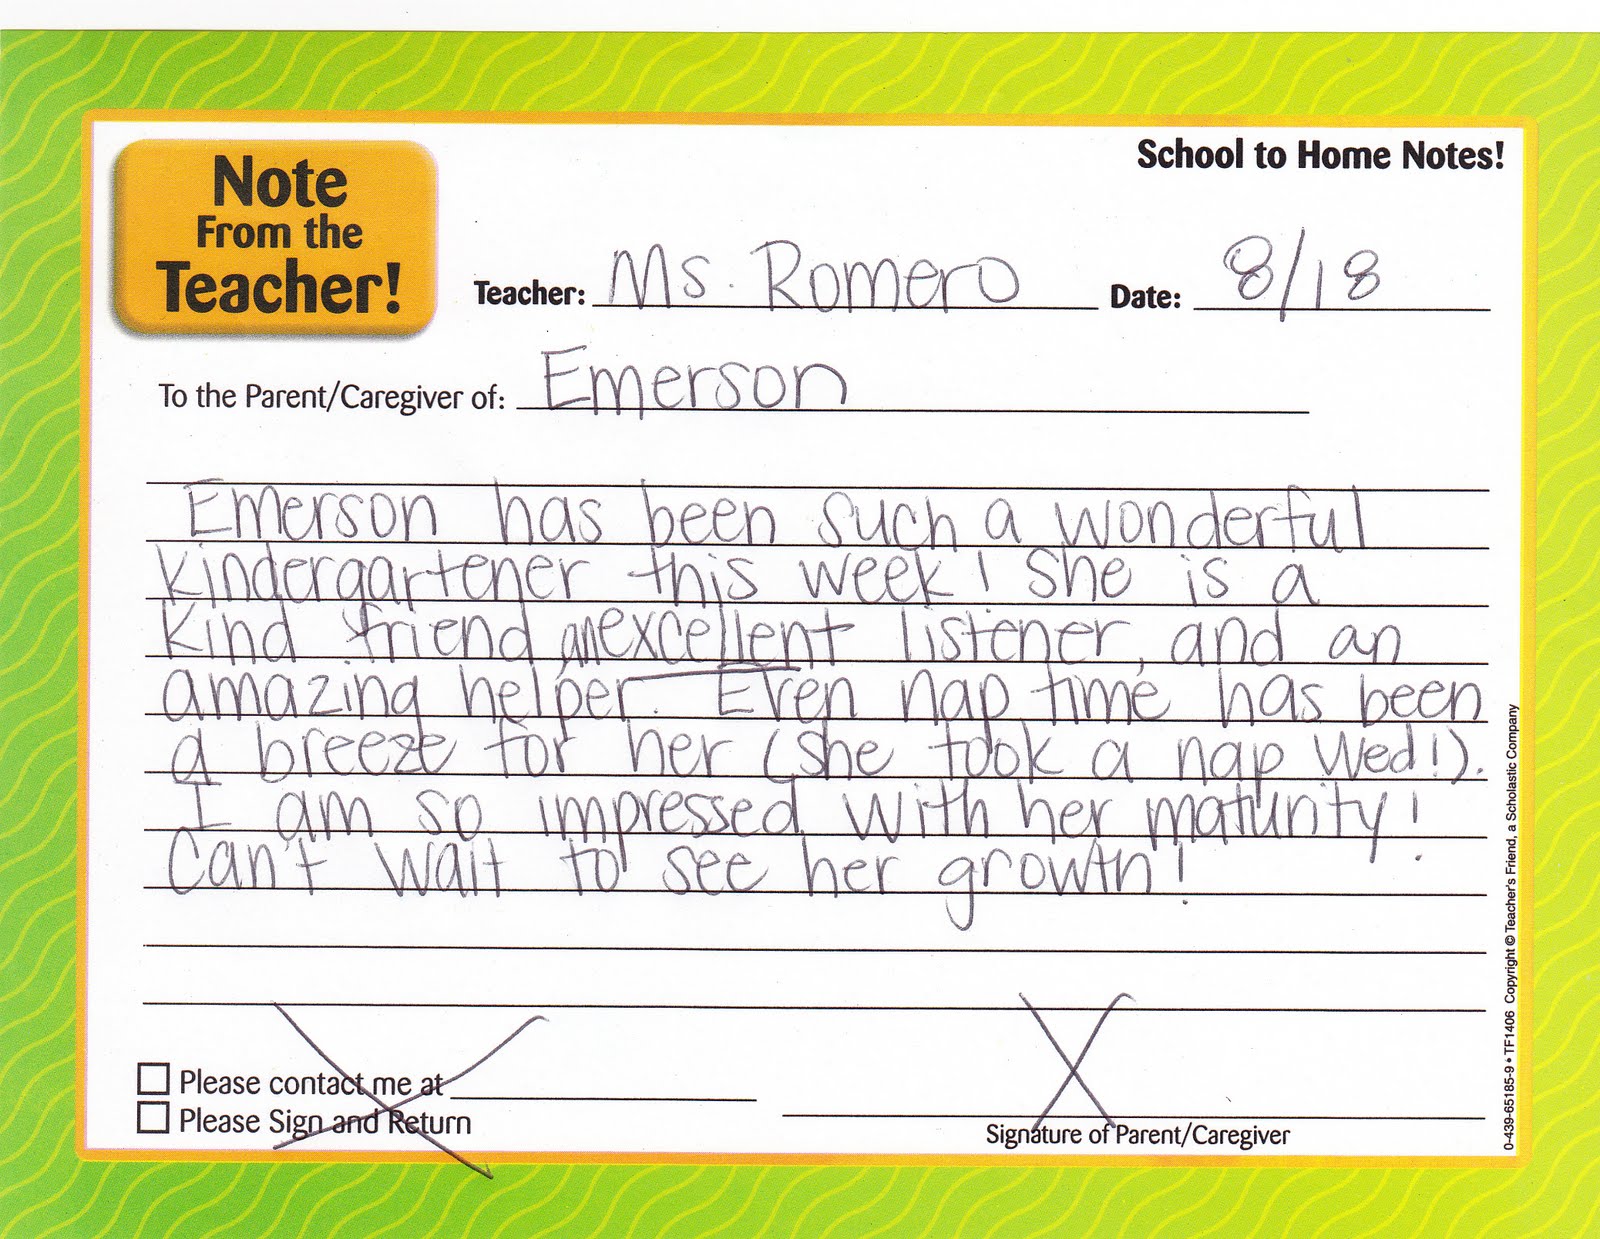 School to Home Notes!
Note
From the
Teacher!
Teacher: Ms. Romero Date: 8/18
To the Parent/Caregiver of: Emerson
Emerson has been such a wonderful
kindergartener this week! She is a
kind friend, an excellent listener, and an
amazing helper. Even nap time has been
a breeze for her (she took a nap Wed!).
I am so impressed with her maturity!
Can't wait to see her growth!
Please contact me at
Please Sign and Return
Signature of Parent/Caregiver
0-439-65185-9 • TF1406 Copyright © Teacher's Friend, a Scholastic Company